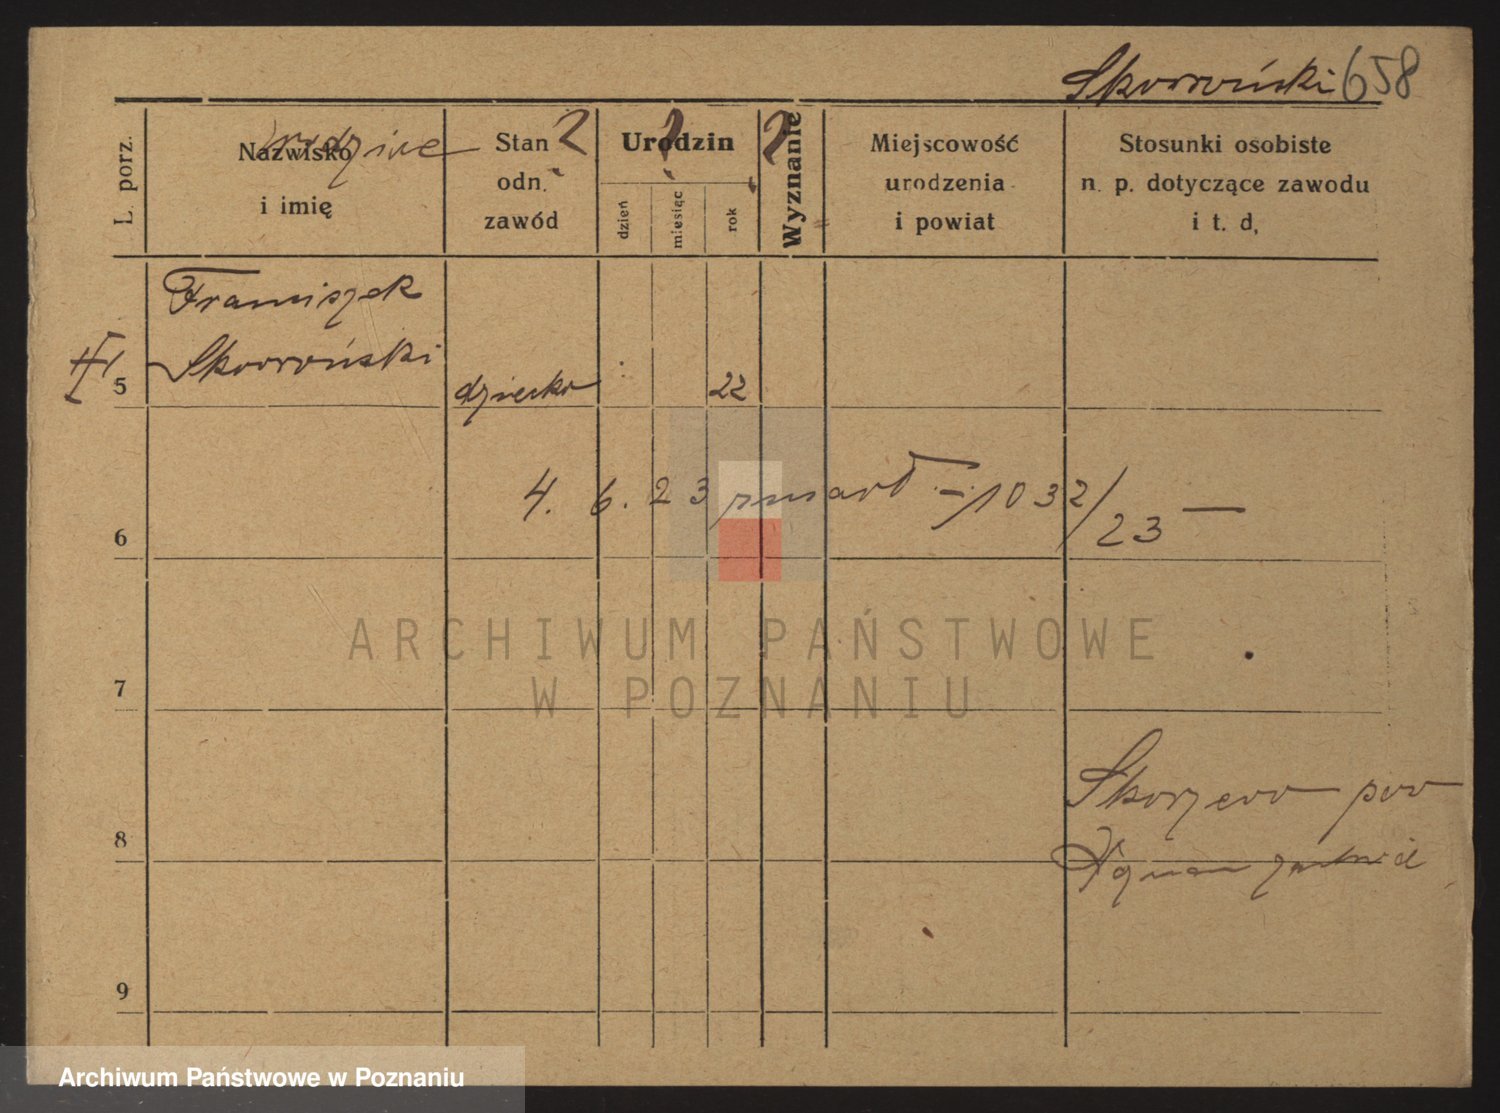 Skowroński 658
L. porz.
Nazwisko
i imię
rodzice
Stan
odn.
zawód
? ? ?
Urodzin
dzień
miesiąc
rok
Wyznanie
Miejscowość
urodzenia
i powiat
Stosunki osobiste
n. p. dotyczące zawodu
i t. d,
Franciszek
5 Skowroński dziecko 22
6 4. 6. 23 zmarł - 1032/23 —
ARCHIWUM PAŃSTWOWE
W POZNANIU
7
Skorzewo pow
8
9
Archiwum Państwowe w Poznaniu